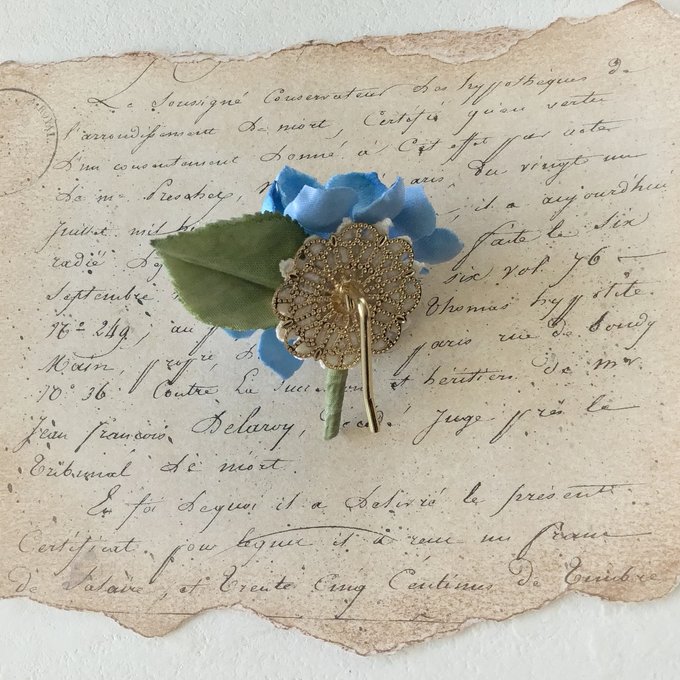 ROYAL
Le Soussigné Conservateur des hypothèques de
l'arrondissement de mort, Certifié qu'en vertu
D'un consentement Donné à Cet effet par acte
De me Preschez, aris, du vingt un
Juillet mil hui il a aujourd'hui
radié De faite le six
Septembre six vol. 76
N° 249, au Thomas hypp
Main, paris rue de bondy
N° 36 Contre La Succ et héritiers de mr.
Jean françois Delaroy, Juge près le
Tribunal De mort.
En foi Dequoi il a Délivré le présente
Certificat pour lequel il a reçu un franc
de Salaire, et Trente Cinq Centimes de Timbre